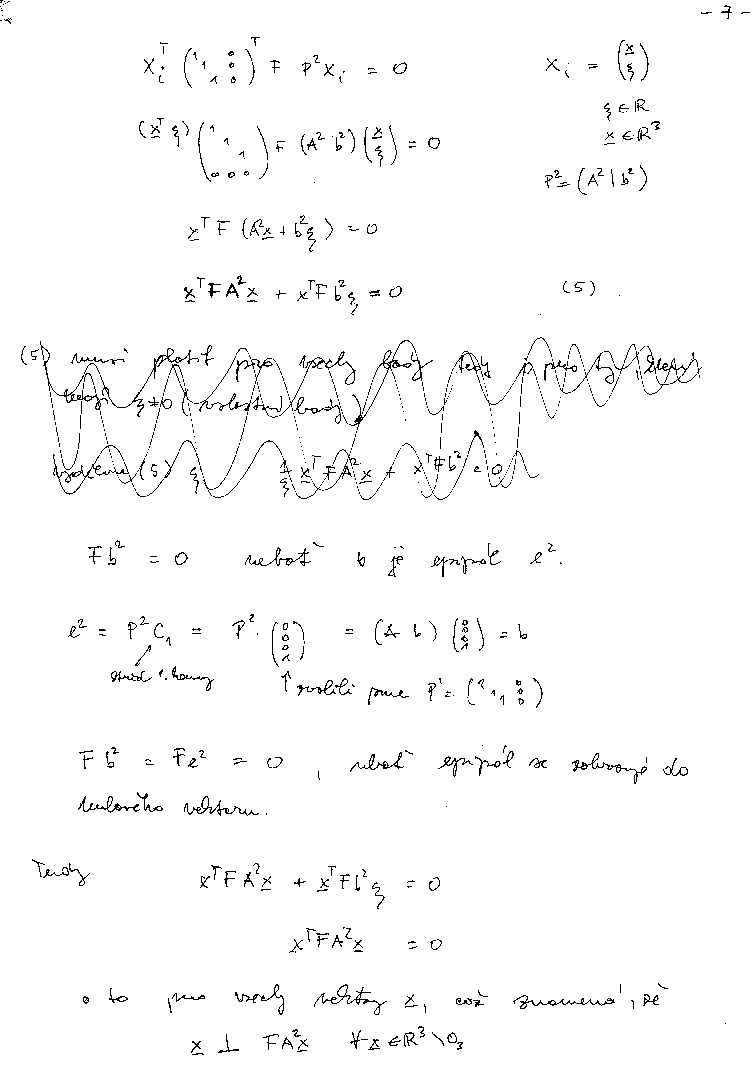 - 7 -
X_i^T (1 1 1 0 0 0)^T F P^2 X_i = 0    X_i = (x ξ)
ξ ∈ R
(x^T ξ) (1 1 1 0 0 0) F (A^2 b^2) (x ξ) = 0    x ∈ R^3
P^2 = (A^2 | b^2)
x^T F (A^2 x + b^2 ξ) = 0
x^T F A^2 x + x^T F b^2 ξ = 0    (5)
(5) musí platit pro všechny body tedy i pro ty, které
mají ξ ≠ 0 (vlastní body)
vydělíme (5) ξ    1/ξ x^T F A^2 x + x^T F b^2 = 0
F b^2 = 0 neboť b je epipól e^2.
e^2 = P^2 C_1 = P^2 · (0 0 0 1) = (A b) (0 0 0 1) = b
střed 1. kamery    ↑ zvolili jsme P^1 = (1 1 1 0 0 0)
F b^2 = F e^2 = 0 , neboť epipól se zobrazuje do
nulového vektoru.
Tedy    x^T F A^2 x + x^T F b^2 ξ = 0
x^T F A^2 x = 0
a to pro všechny vektory x, což znamená, že
x ⊥ F A^2 x    ∀ x ∈ R^3 \ 0_3